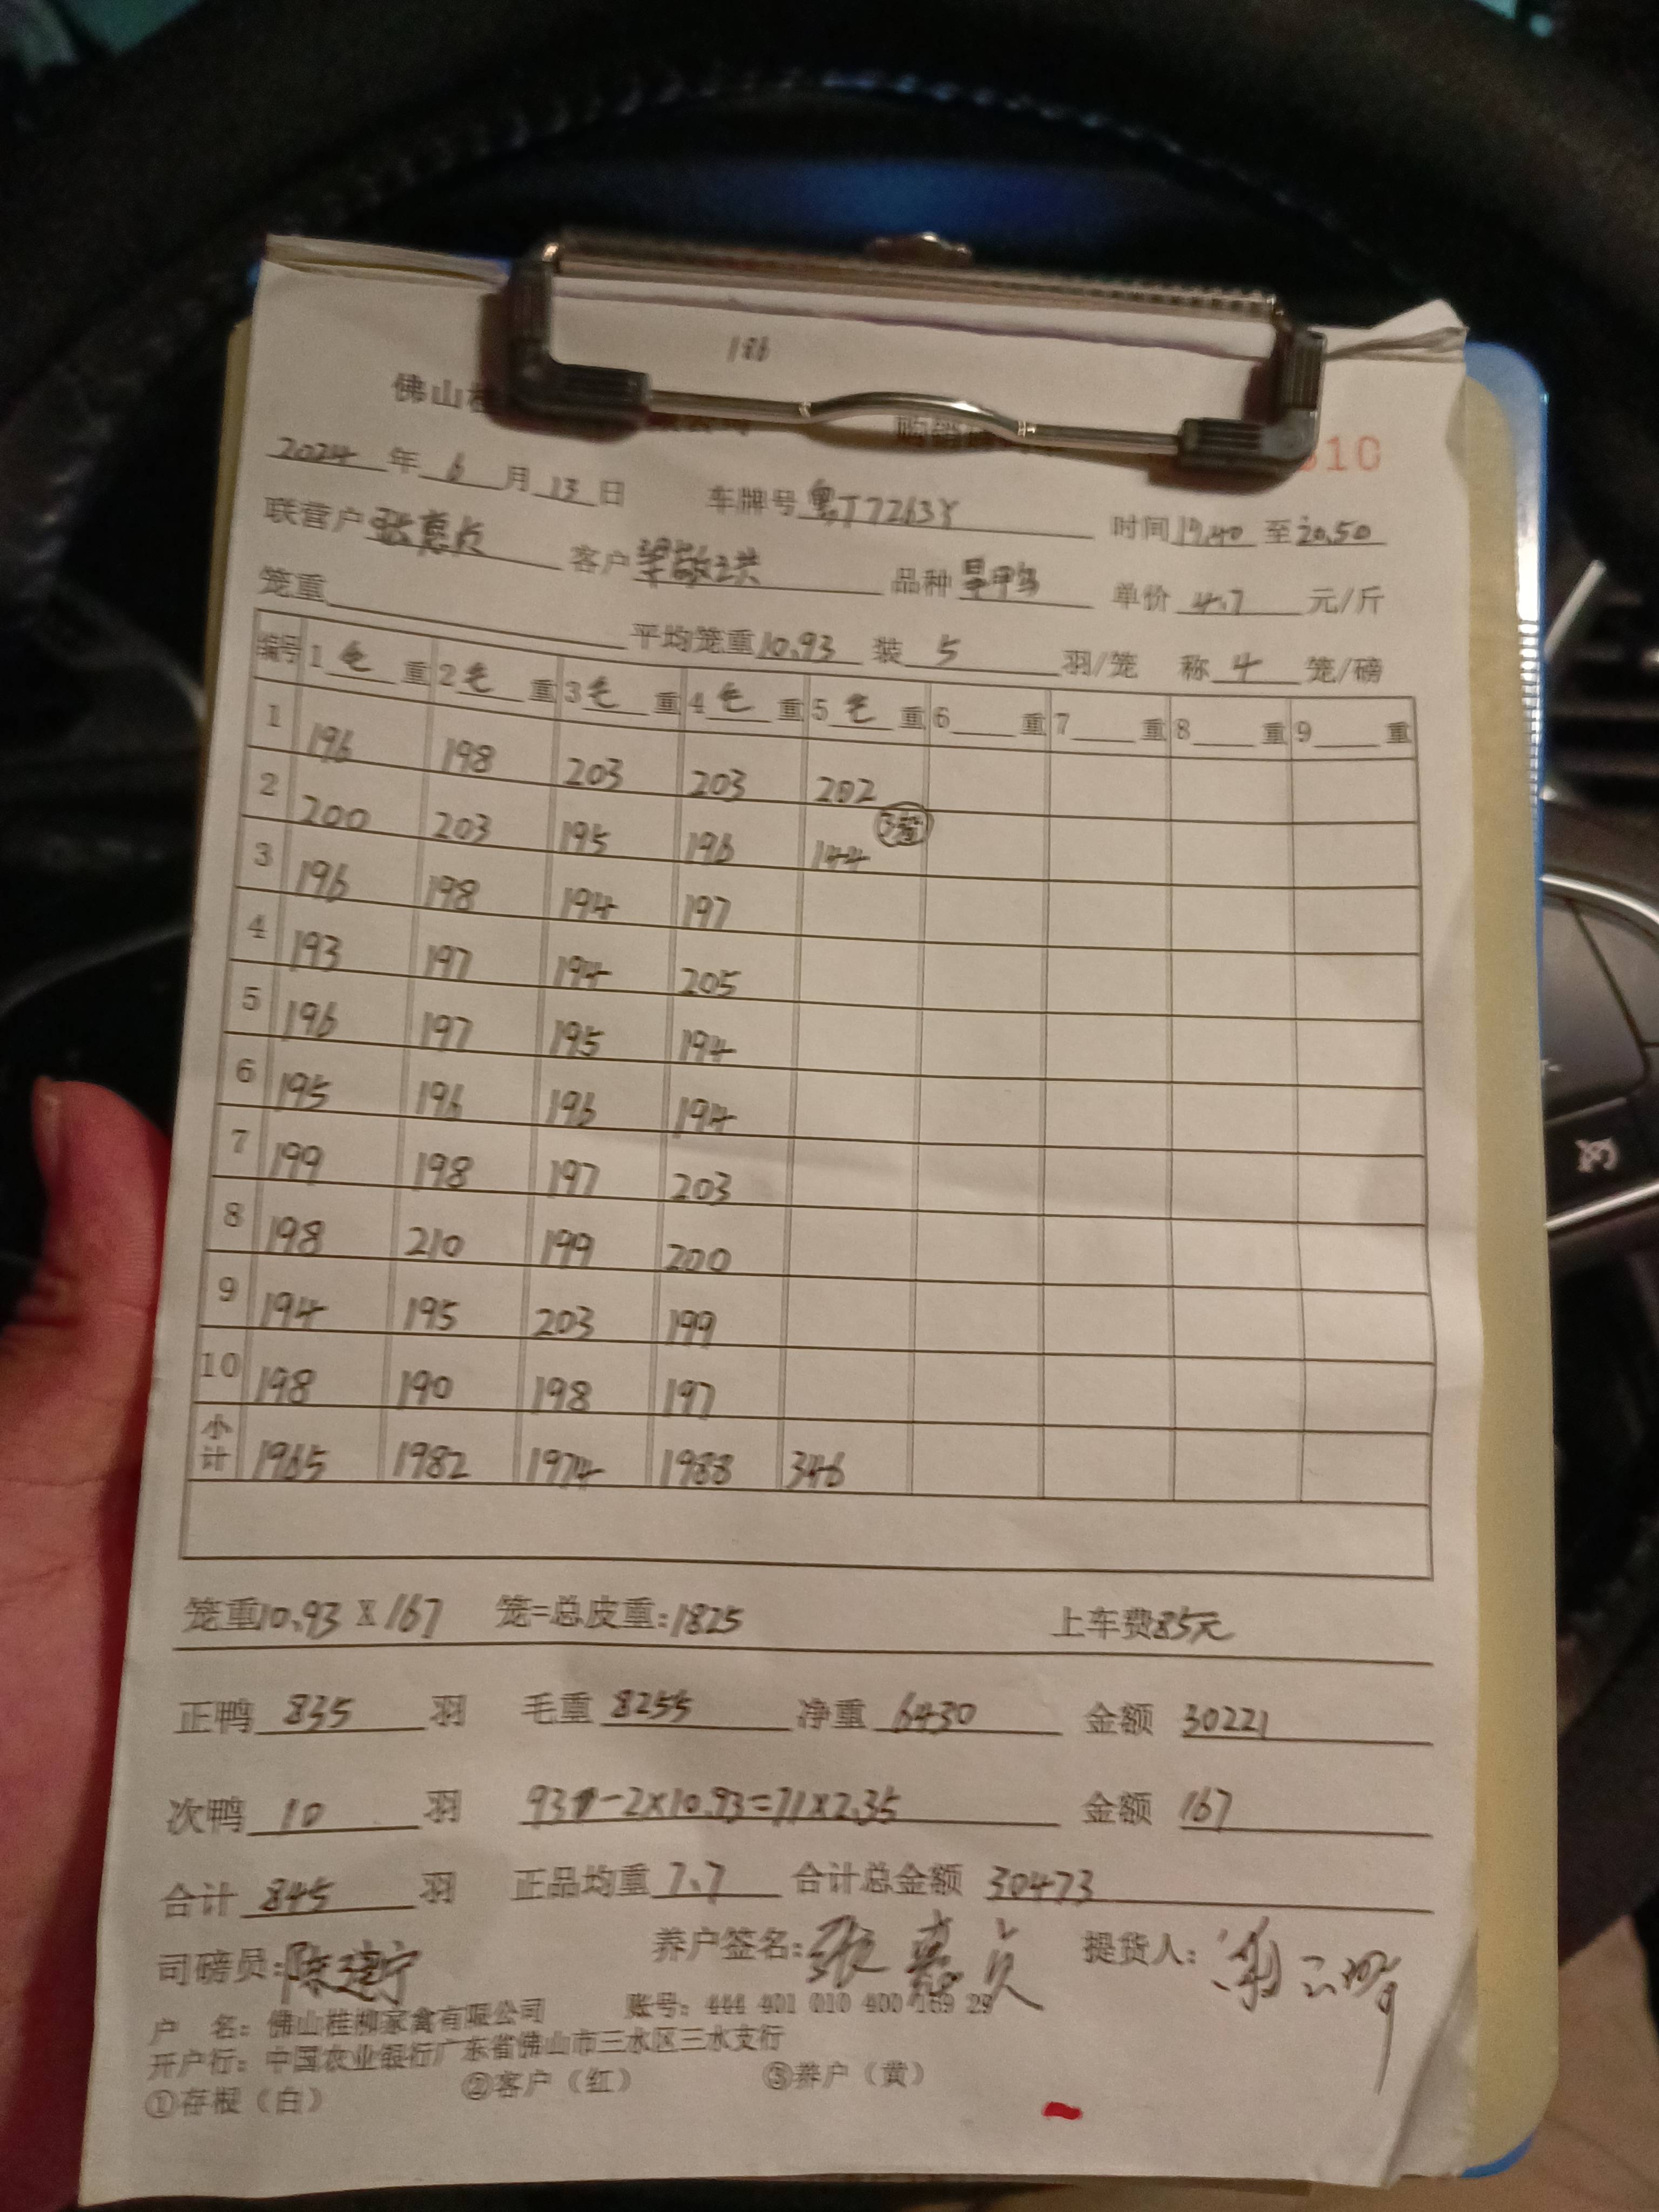 186
佛山桂
310
2024年6月13日 车牌号粤J7263Y 时间19.40至20.50
联营户张惠贞 客户梁敬洪 品种旱鸭 单价4.7元/斤
笼重 平均笼重10.93 装5羽/笼 称4笼/磅
编号 1毛重 2毛重 3毛重 4毛重 5毛重 6重 7重 8重 9重
1 196 198 203 203 202
2 200 203 195 196 144 ③笼
3 196 198 194 197
4 193 197 194 205
5 196 197 195 194
6 195 196 196 194
7 199 198 197 203
8 198 210 199 200
9 194 195 203 199
10 198 190 198 197
小计 1965 1982 1974 1988 346
笼重10.93X167 笼=总皮重:1825 上车费85元
正鸭835羽 毛重8255 净重6430 金额30221
次鸭10羽 93-2×10.93=71×2.35 金额167
合计845羽 正品均重7.7 合计总金额30473
司磅员:陈建宁 养户签名:张惠贞 提货人:
户 名：佛山桂柳家禽有限公司 账号：444 401 010 400 169 29
开户行：中国农业银行广东省佛山市三水区三水支行
①存根（白） ②客户（红） ③养户（黄）